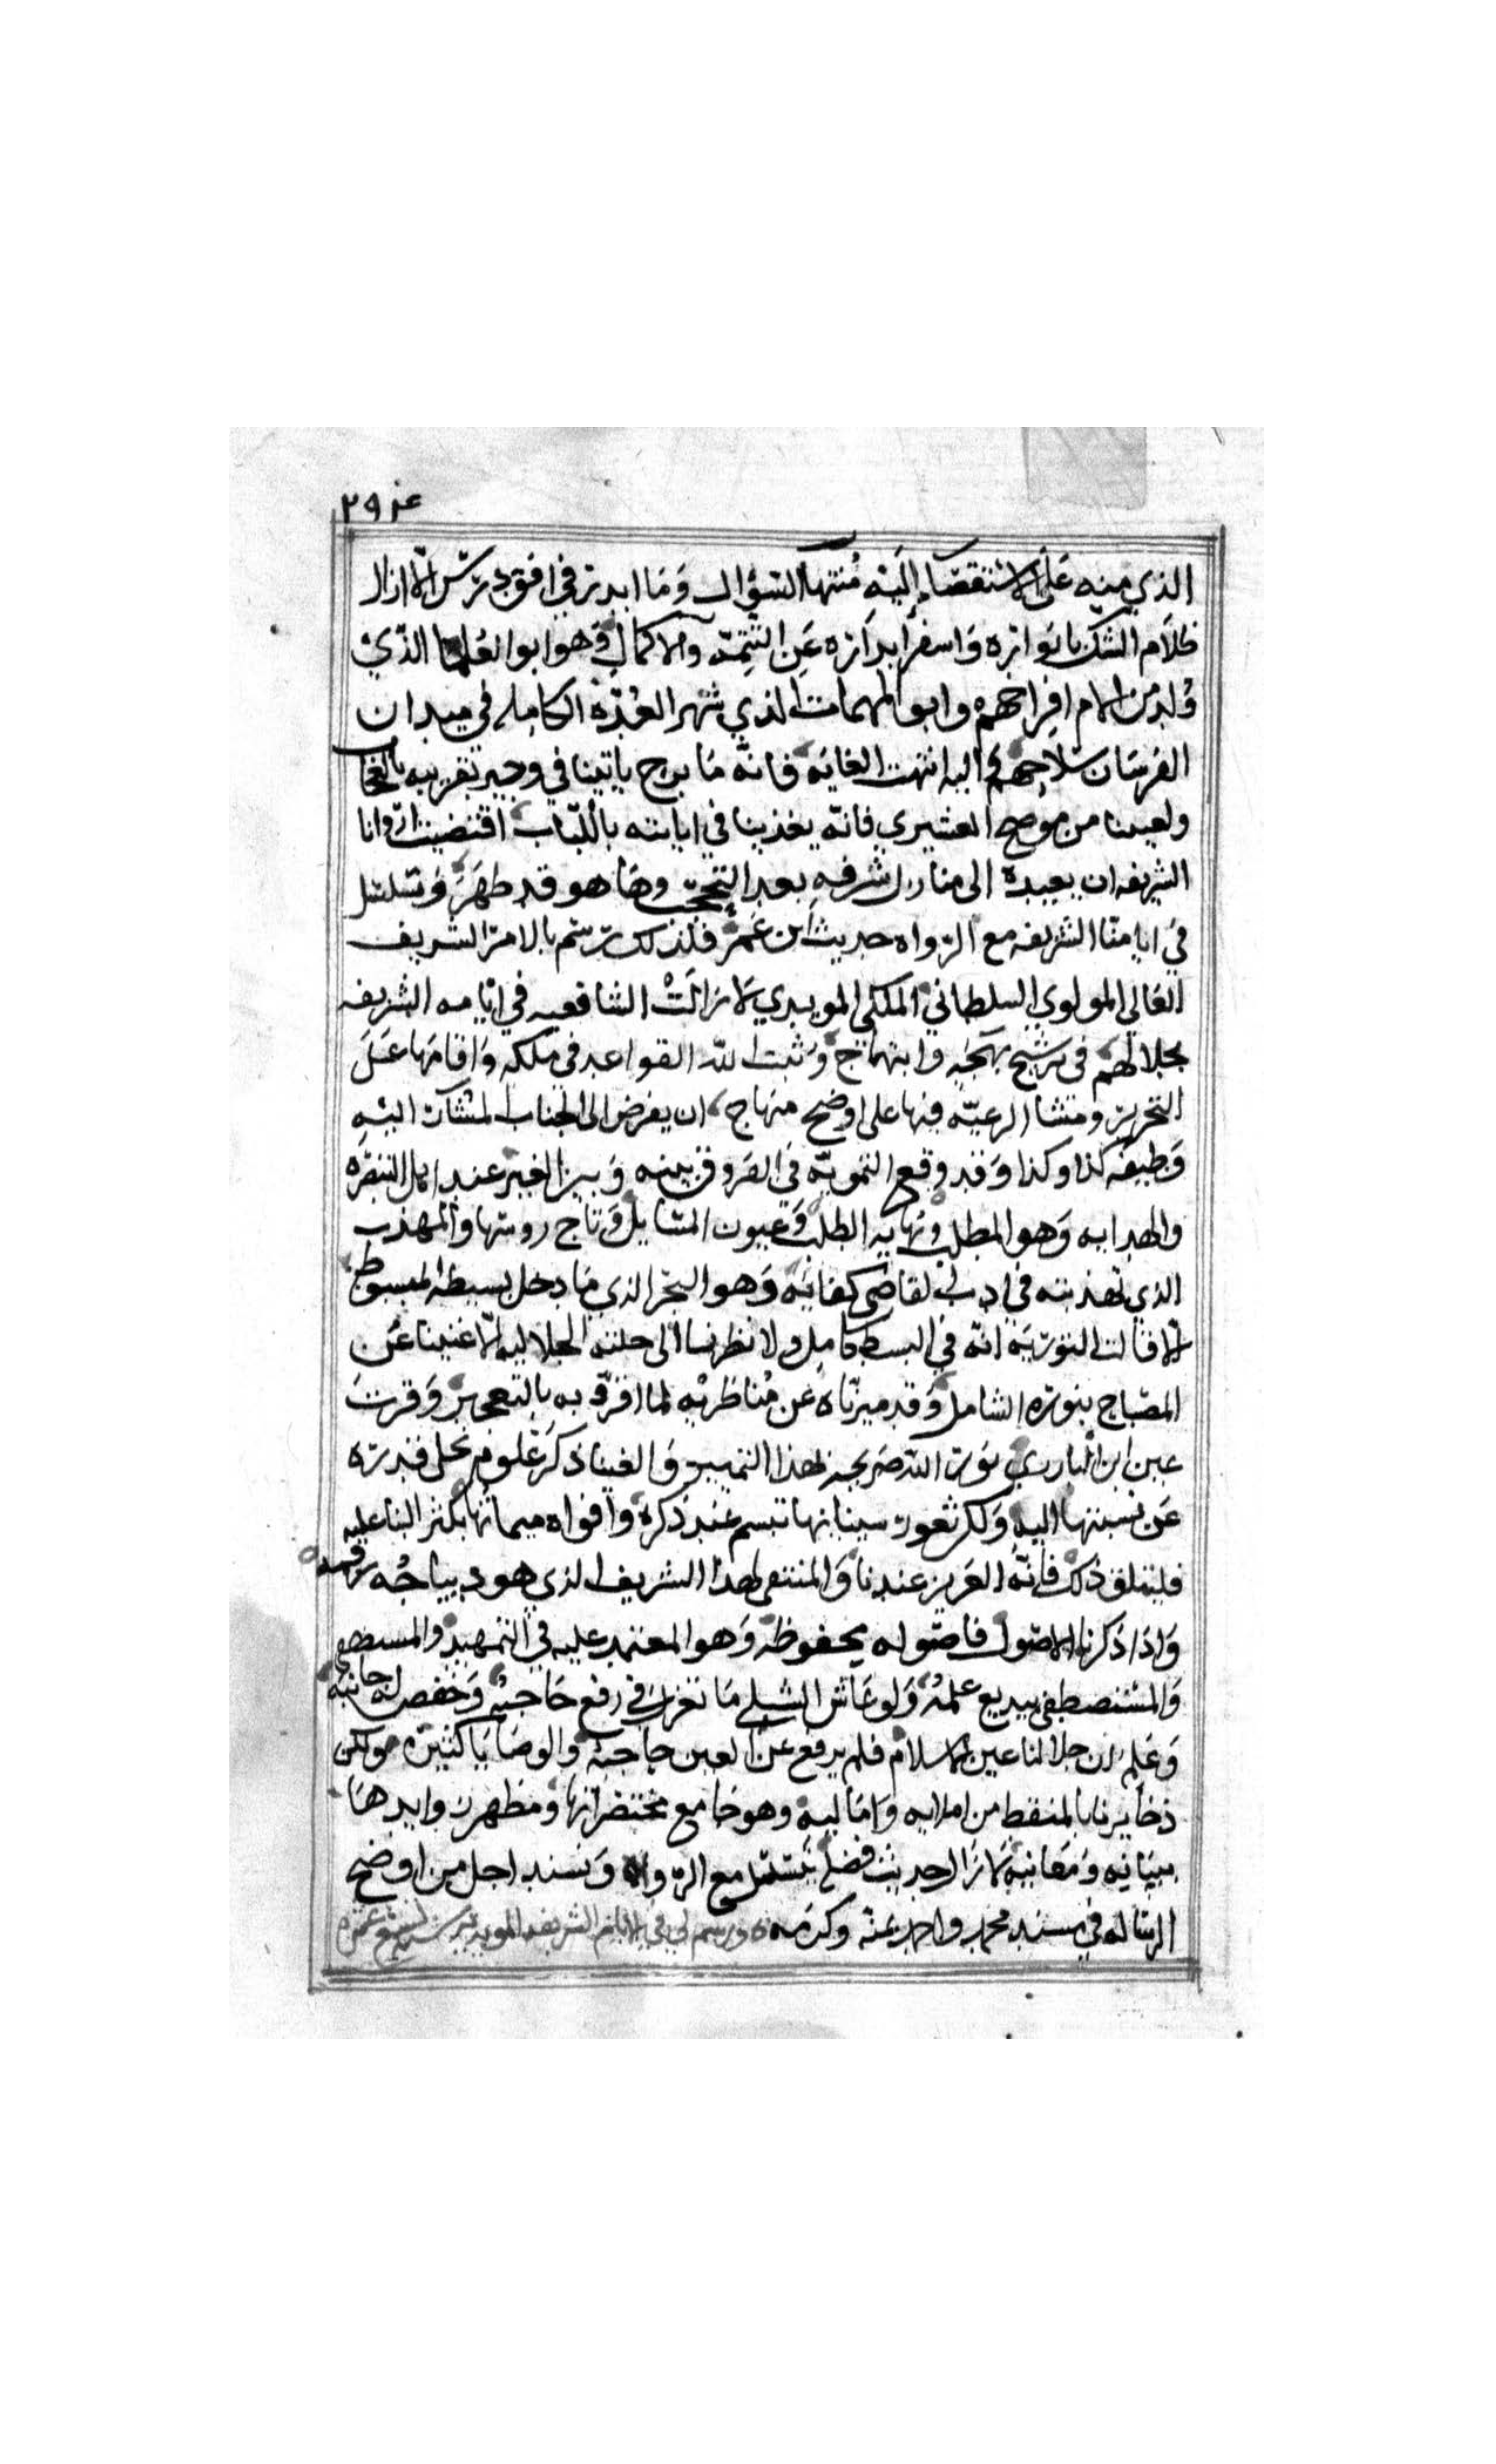 ٢٩٤
الذي منه على الاستقصاء إليه منتها السؤال وما ابدر في افق درس الا ازال
ظلام الشك بانواره واسفر ابداره عن التتمة والاكمال وهو ابو العلما الذي
ولد من الامام افراحهم وابو المهمات الذي شهر العدة الكامله في ميدان
الفرسان سلاحهم واليه انتهت الغايه فانه ما برح ياتينا في وجيز تقريبه بالعجاب
ولعيبنا من موضح العشيري فانه يغذينا في ابانته باللباب اقتضت اراوانا
الشريفه ان يعيده الى منازل شرفه بعد التحجب وها هو قد ظهر وتسلسل
في ايامنا الشريفه مع الرواه حديث ابن عمر فلذلك رسم بالامر الشريف
العالي المولوي السلطاني الملكي المويدي لا زالت الشافعيه في ايامه الشريفه
بجلالهم في ترشيح بهجه وابتهاج وثبت الله القواعد في ملكه واقامها على
التحرير ومشا الرعيه فيها على اوضح منهاج ان يفوض الى الجناب المشار اليه
وظيفه كذا وكذا وقد وقع التمويه في الفروق بينه وبين الغير عند اهل التبصره
والهدايه وهو المطلب ونهايه الطلب وعيون المسايل وتاج روسها والمهذب
الذي تهذيبه في ادب القاضي كفايه وهو البحر الذي ما دخل بسيطه المبسوط
الا قالت التوريه انه في البسيط كامل ولا نظرنا الى حلته الجلاليه الا غنينا عن
المصباح بنوره الشامل وقد ميزناه عن مناظريه لما اقروا به بالتعجيز وقرت
عين ابن البارزي نور الله ضريحه لهذا التمييز والغينا ذكر علوم تحلى قدره
عن نسبتها اليه ولكن ثغور سيناتها تبسم عند ذكره وافواه ميماتها بكثر الثنا عليه
فليتلق ذلك فانه العزيز عندنا والمنتقى لهذا الشريف الذي هو ديباجه رقمه
واذا ذكرنا الاصول فاصوله محفوظه وهو المعتمد عليه في التمهيد والمستصفى
والمستصطفى ببديع علمه ولو عاش الشبلي ما تغزل في رفع حاجبه وخفض له جانبه
وعلم ان جلالنا عين الاسلام فلم يرفع عن العين حاجبه والوصايا كثيره ولكن
ذخايرنا بالملتقط من املايه واماليه وهو جامع مختصراتها ومظهر زوايدها
ببيانه ومعانيه لا زال حديث فضله يتسلسل مع الرواه ويسند اجل من اوضح
الرساله في مسند محمد واحمد بمنه وكرمه ورسم لي في الايام الشريفه المويديه